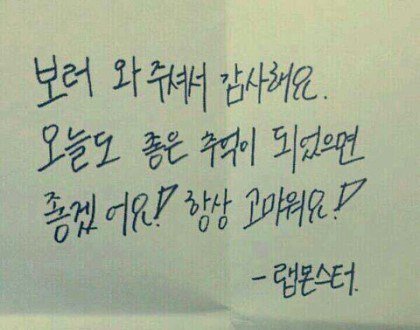 보러 와 주셔서 감사해요.
오늘도 좋은 추억이 되었으면
좋겠어요! 항상 고마워요!
- 랩몬스터.